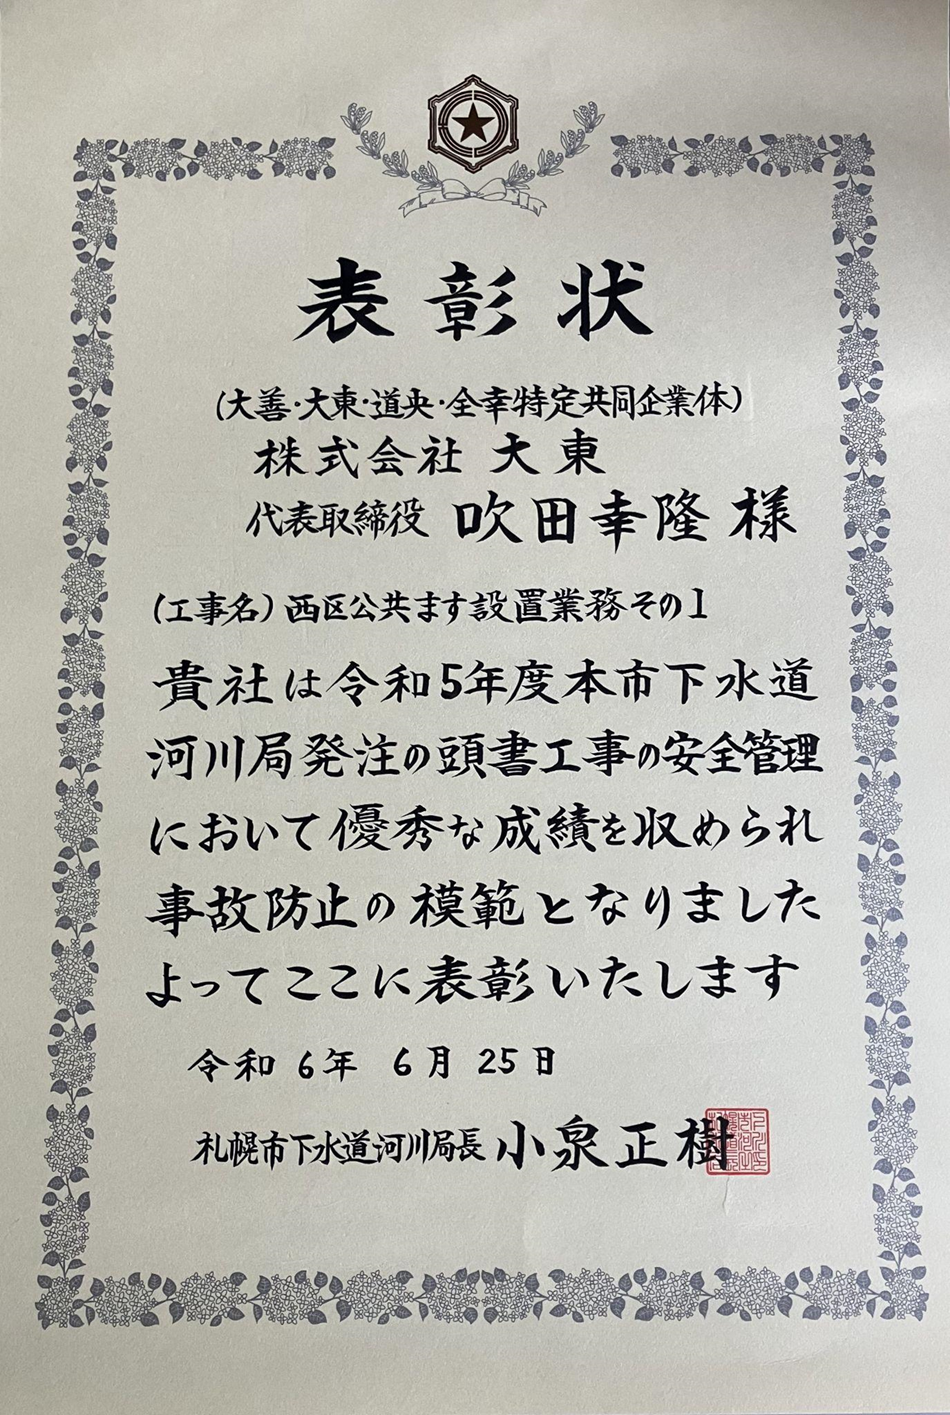 表彰状
(大善・大東・道央・全幸特定共同企業体)
株式会社 大東
代表取締役 吹田幸隆 様
(工事名) 西区公共ます設置業務その1
貴社は令和5年度本市下水道
河川局発注の頭書工事の安全管理
において優秀な成績を収められ
事故防止の模範となりました
よってここに表彰いたします
令和 6年 6月 25日
札幌市下水道河川局長 小泉正樹